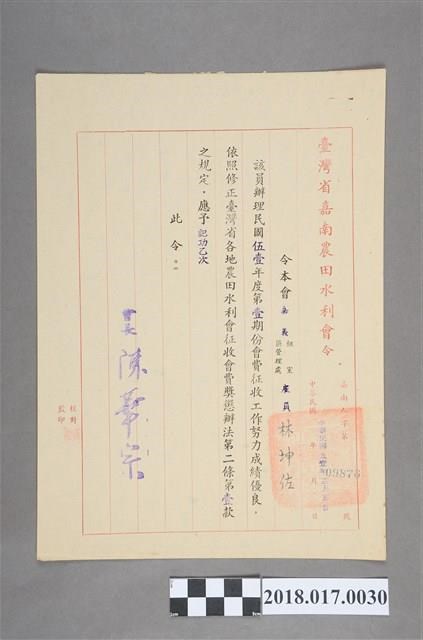 臺灣省嘉南農田水利會令
嘉南人字第09876號
中華民國 年 月 日
令本會嘉義區管理處 組室 雇員 林坤佐
該員辦理民國伍壹年度第壹期份會費征收工作努力成績優良，
依照修正臺灣省各地農田水利會征收會費獎懲辦法第二條第壹款
之規定，應予記功乙次
此令。
會長 陳華宗
校對
監印
2018.017.0030